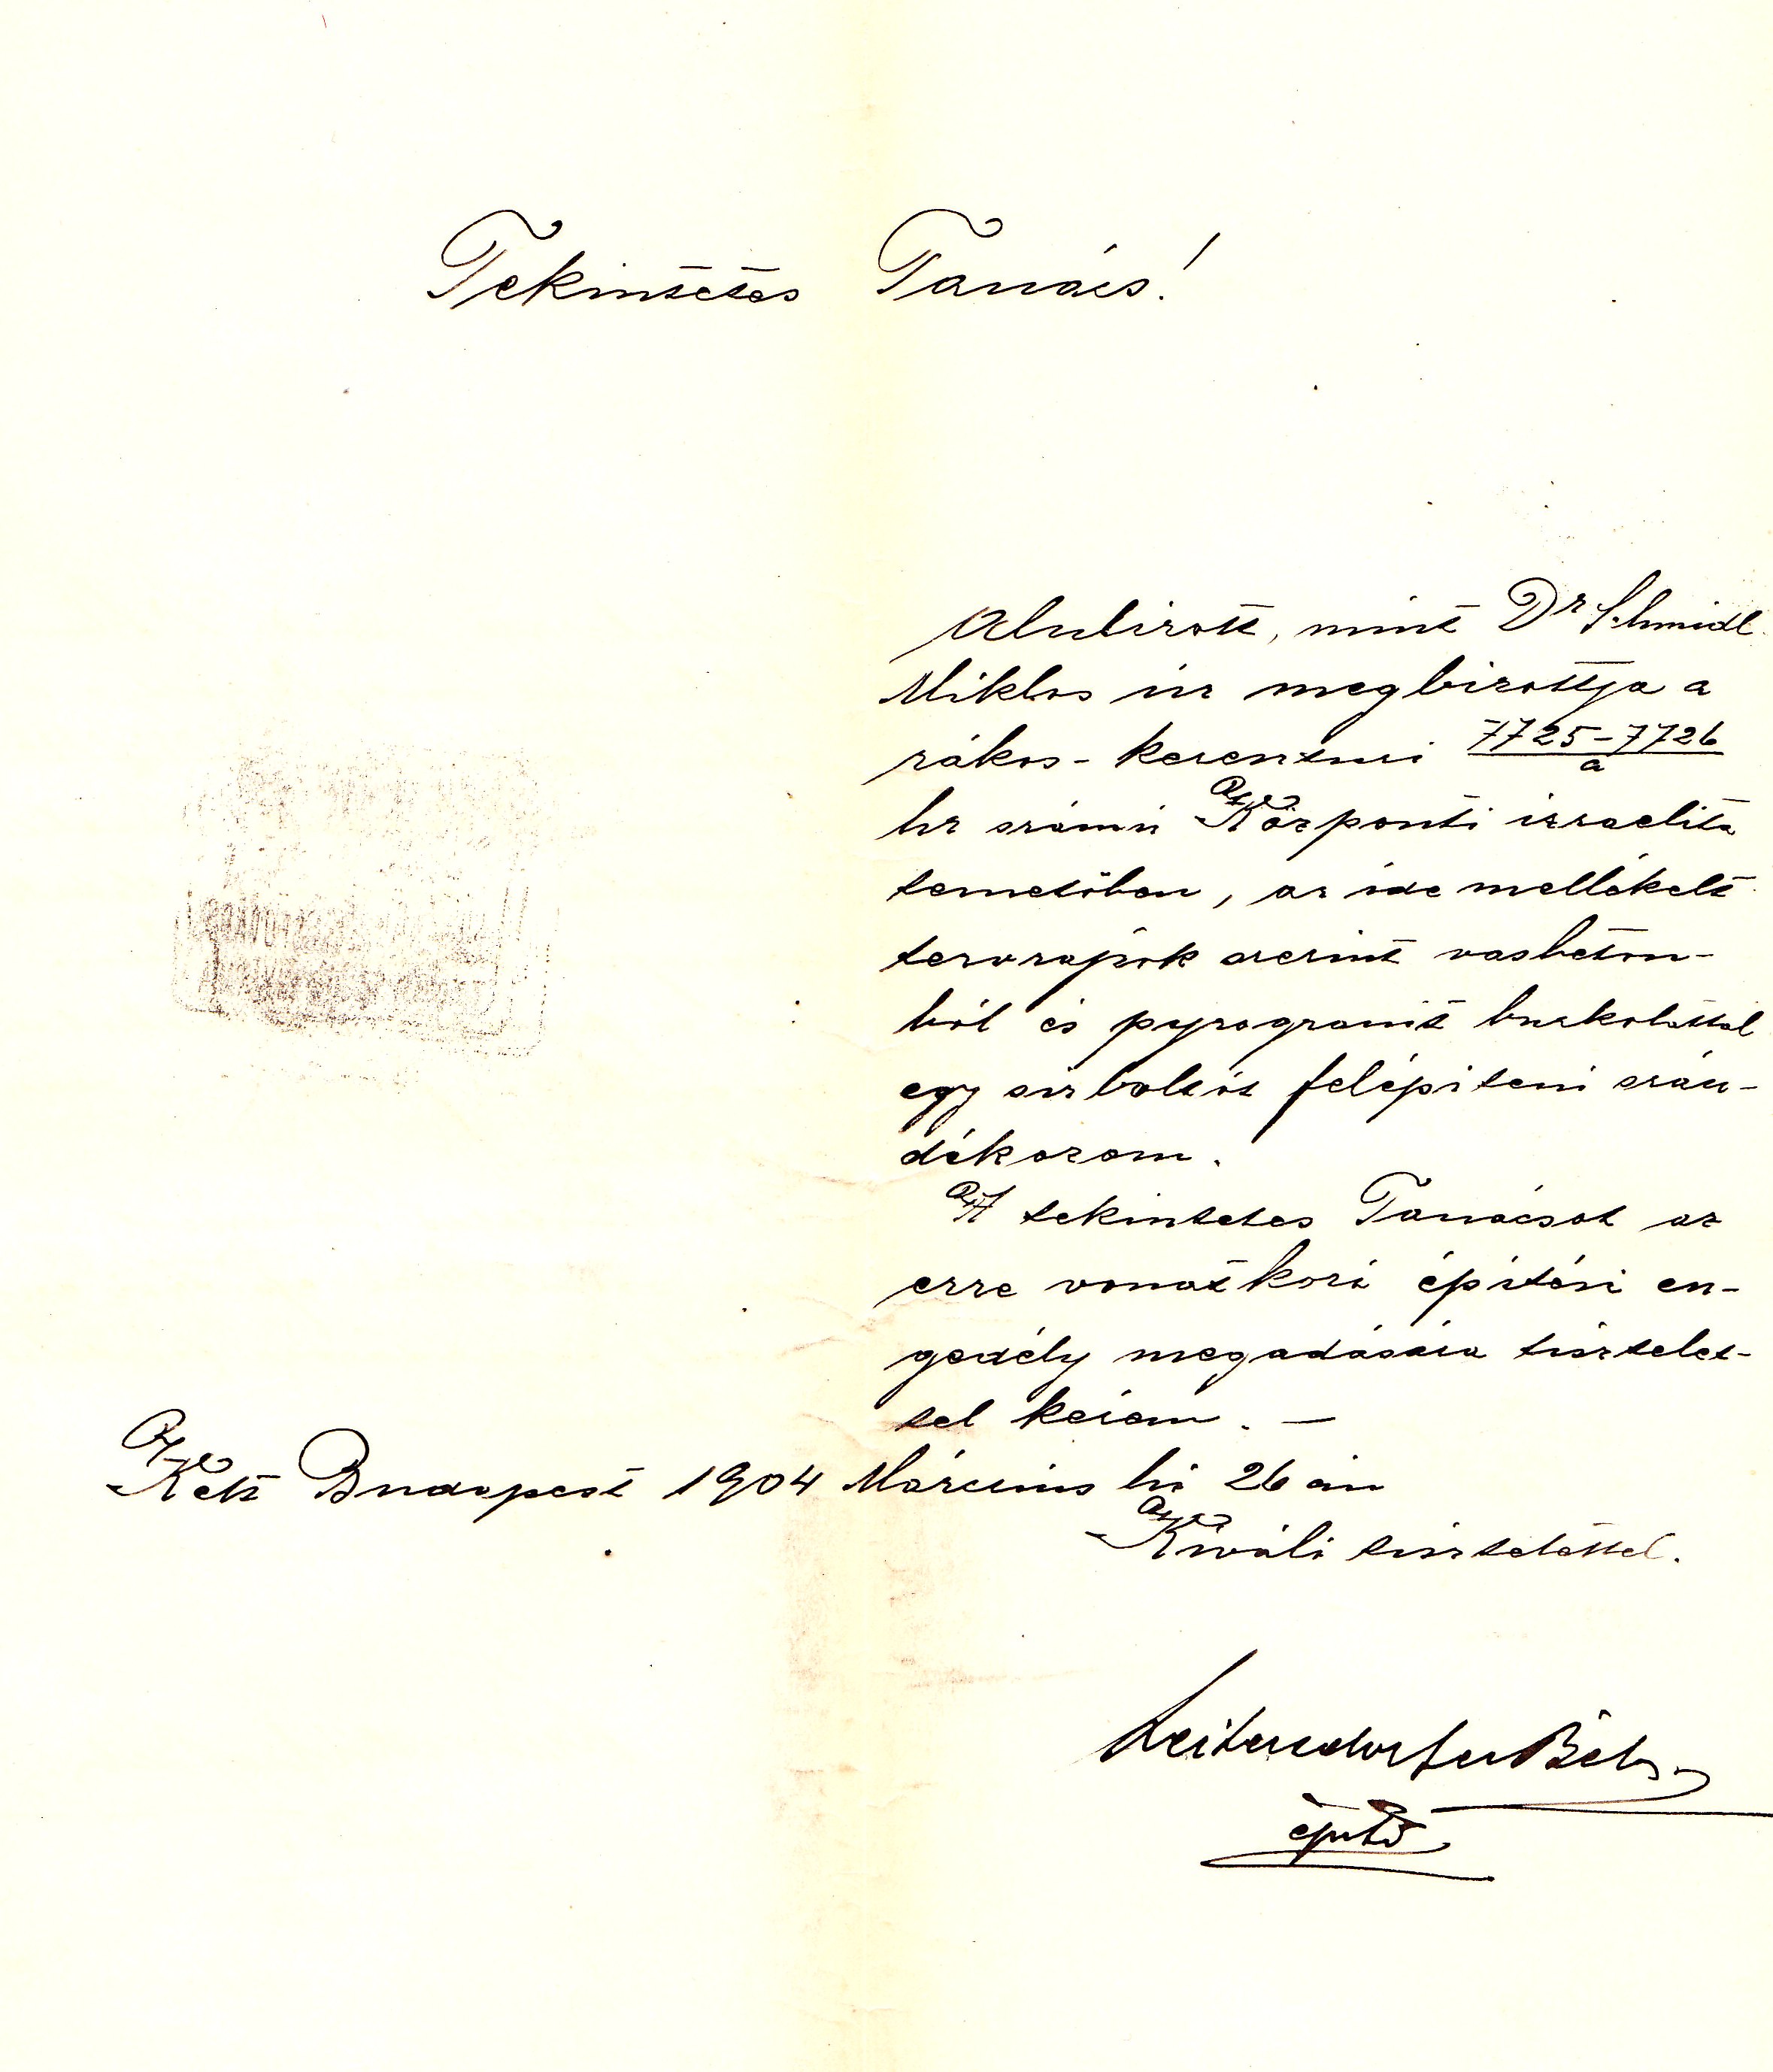 Tekintetes Tanács!
Alulirott, mint Dr Schmidl
Miklos úr megbizottja a
rákos-kereszturi 7725-7726/a
hr számú Központi izraelita
temetőben, az ide mellékelt
tervrajzok szerint vasbeton-
ból és pyrogranit burkolattal
egy sirboltot felépiteni szán-
dékozom.
A tekintetes Tanácsot az
erre vonatkozó épitési en-
gedély megadására tisztelet-
tel kérem. —
Kelt Budapest 1904 Március hó 26 án
Kiváló tisztelettel.
Leitersdorfer Béla
épitő